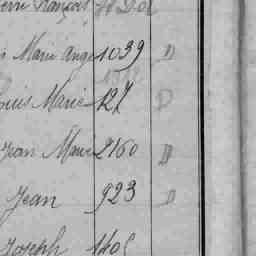 Marie Ange 1039 D
Louis Marie 127 D
Jean Marie 2160 D
Jean 923 D
Joseph 1405